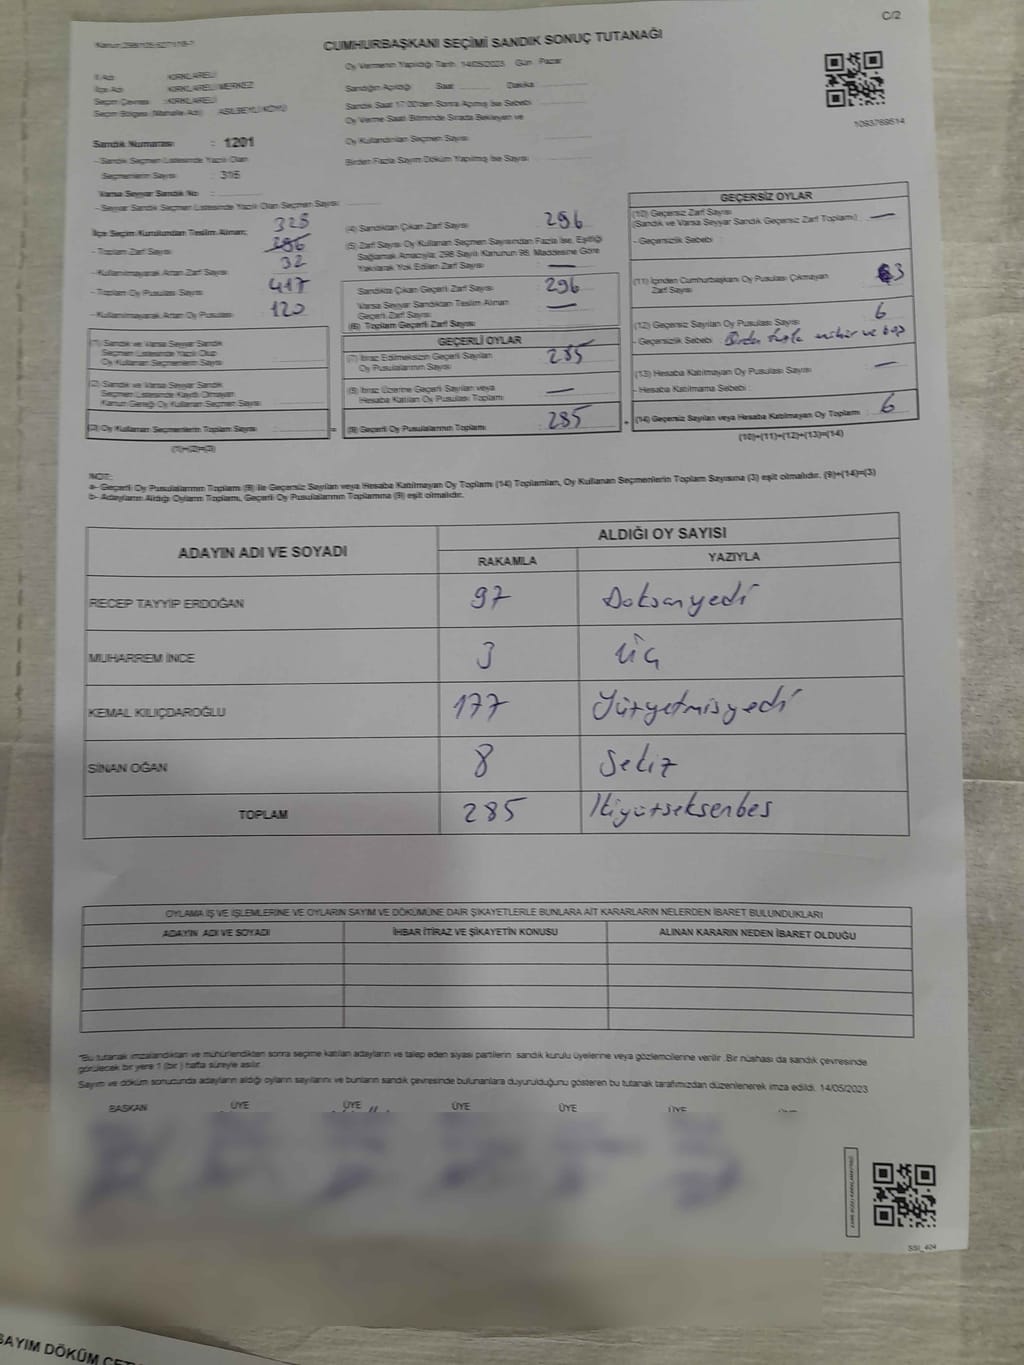 C/2
Kanun:298/105;6271/18-1
CUMHURBAŞKANI SEÇİMİ SANDIK SONUÇ TUTANAĞI
İl Adı : KIRKLARELİ
İlçe Adı : KIRKLARELİ MERKEZ
Seçim Çevresi : KIRKLARELİ
Seçim Bölgesi (Mahalle Adı) : ASILBEYLİ KÖYÜ
Oy Vermenin Yapıldığı Tarih: 14/05/2023 Gün : Pazar
Sandığın Açıldığı Saat Dakika
Sandık Saat 17.00'den Sonra Açılmış İse Sebebi
Oy Verme Saati Bitiminde Sırada Bekleyen ve
Oy Kullandırılan Seçmen Sayısı
Birden Fazla Sayım Döküm Yapılmış İse Sayısı
1093769514
Sandık Numarası : 1201
- Sandık Seçmen Listesinde Yazılı Olan
Seçmenlerin Sayısı : 316
Varsa Seyyar Sandık No :
- Seyyar Sandık Seçmen Listesinde Yazılı Olan Seçmen Sayısı :
İlçe Seçim Kurulundan Teslim Alınan; 328
- Toplam Zarf Sayısı 286
- Kullanılmayarak Artan Zarf Sayısı 32
- Toplam Oy Pusulası Sayısı 417
- Kullanılmayarak Artan Oy Pusulası 120
(1) Sandık ve Varsa Seyyar Sandık
Seçmen Listesinde Yazılı Olup
Oy Kullanan Seçmenlerin Sayısı
(2) Sandık ve Varsa Seyyar Sandık
Seçmen Listesinde Kaydı Olmayan
Kanun Gereği Oy Kullanan Seçmen Sayısı
(3) Oy Kullanan Seçmenlerin Toplam Sayısı =
(1)+(2)=(3)
(4) Sandıktan Çıkan Zarf Sayısı 296
(5) Zarf Sayısı Oy Kullanan Seçmen Sayısından Fazla İse, Eşitliği
Sağlamak Amacıyla; 298 Sayılı Kanunun 98. Maddesine Göre
Yakılarak Yok Edilen Zarf Sayısı —
Sandıkta Çıkan Geçerli Zarf Sayısı 296
Varsa Seyyar Sandıktan Teslim Alınan
Geçerli Zarf Sayısı —
(6) Toplam Geçerli Zarf Sayısı
GEÇERLİ OYLAR
(7) İtiraz Edilmeksizin Geçerli Sayılan
Oy Pusulalarının Sayısı 285
(8) İtiraz Üzerine Geçerli Sayılan veya
Hesaba Katılan Oy Pusulası Toplamı —
(9) Geçerli Oy Pusulalarının Toplamı 285 +
GEÇERSİZ OYLAR
(10) Geçersiz Zarf Sayısı
(Sandık ve Varsa Seyyar Sandık Geçersiz Zarf Toplamı) —
- Geçersizlik Sebebi :
(11) İçinden Cumhurbaşkanı Oy Pusulası Çıkmayan
Zarf Sayısı 3
(12) Geçersiz Sayılan Oy Pusulası Sayısı 6
- Geçersizlik Sebebi : Birden fazla mühür ve boş
(13) Hesaba Katılmayan Oy Pusulası Sayısı —
- Hesaba Katılmama Sebebi :
(14) Geçersiz Sayılan veya Hesaba Katılmayan Oy Toplamı 6
(10)+(11)+(12)+(13)=(14)
NOT:
a- Geçerli Oy Pusulalarının Toplamı (9) ile Geçersiz Sayılan veya Hesaba Katılmayan Oy Toplamı (14) Toplamları, Oy Kullanan Seçmenlerin Toplam Sayısına (3) eşit olmalıdır. (9)+(14)=(3)
b- Adayların Aldığı Oyların Toplamı, Geçerli Oy Pusulalarının Toplamına (9) eşit olmalıdır.
ADAYIN ADI VE SOYADI ALDIĞI OY SAYISI
RAKAMLA YAZIYLA
RECEP TAYYİP ERDOĞAN 97 Doksanyedi
MUHARREM İNCE 3 üç
KEMAL KILIÇDAROĞLU 177 Yüzyetmişyedi
SİNAN OĞAN 8 Sekiz
TOPLAM 285 İkiyüzseksenbeş
OYLAMA İŞ VE İŞLEMLERİNE VE OYLARIN SAYIM VE DÖKÜMÜNE DAİR ŞİKAYETLERLE BUNLARA AİT KARARLARIN NELERDEN İBARET BULUNDUKLARI
ADAYIN ADI VE SOYADI İHBAR İTİRAZ VE ŞİKAYETİN KONUSU ALINAN KARARIN NEDEN İBARET OLDUĞU
*Bu tutanak imzalandıktan ve mühürlendikten sonra seçime katılan adayların ve talep eden siyasi partilerin sandık kurulu üyelerine veya gözlemcilerine verilir. Bir nüshası da sandık çevresinde
görülecek bir yere 1 (bir) hafta süreyle asılır.
Sayım ve döküm sonucunda adayların aldığı oyların sayılarını ve bunların sandık çevresinde bulunanlara duyurulduğunu gösteren bu tutanak tarafımızdan düzenlenerek imza edildi. 14/05/2023
BAŞKAN ÜYE ÜYE ÜYE ÜYE ÜYE
SSİ_404
SAYIM DÖKÜM